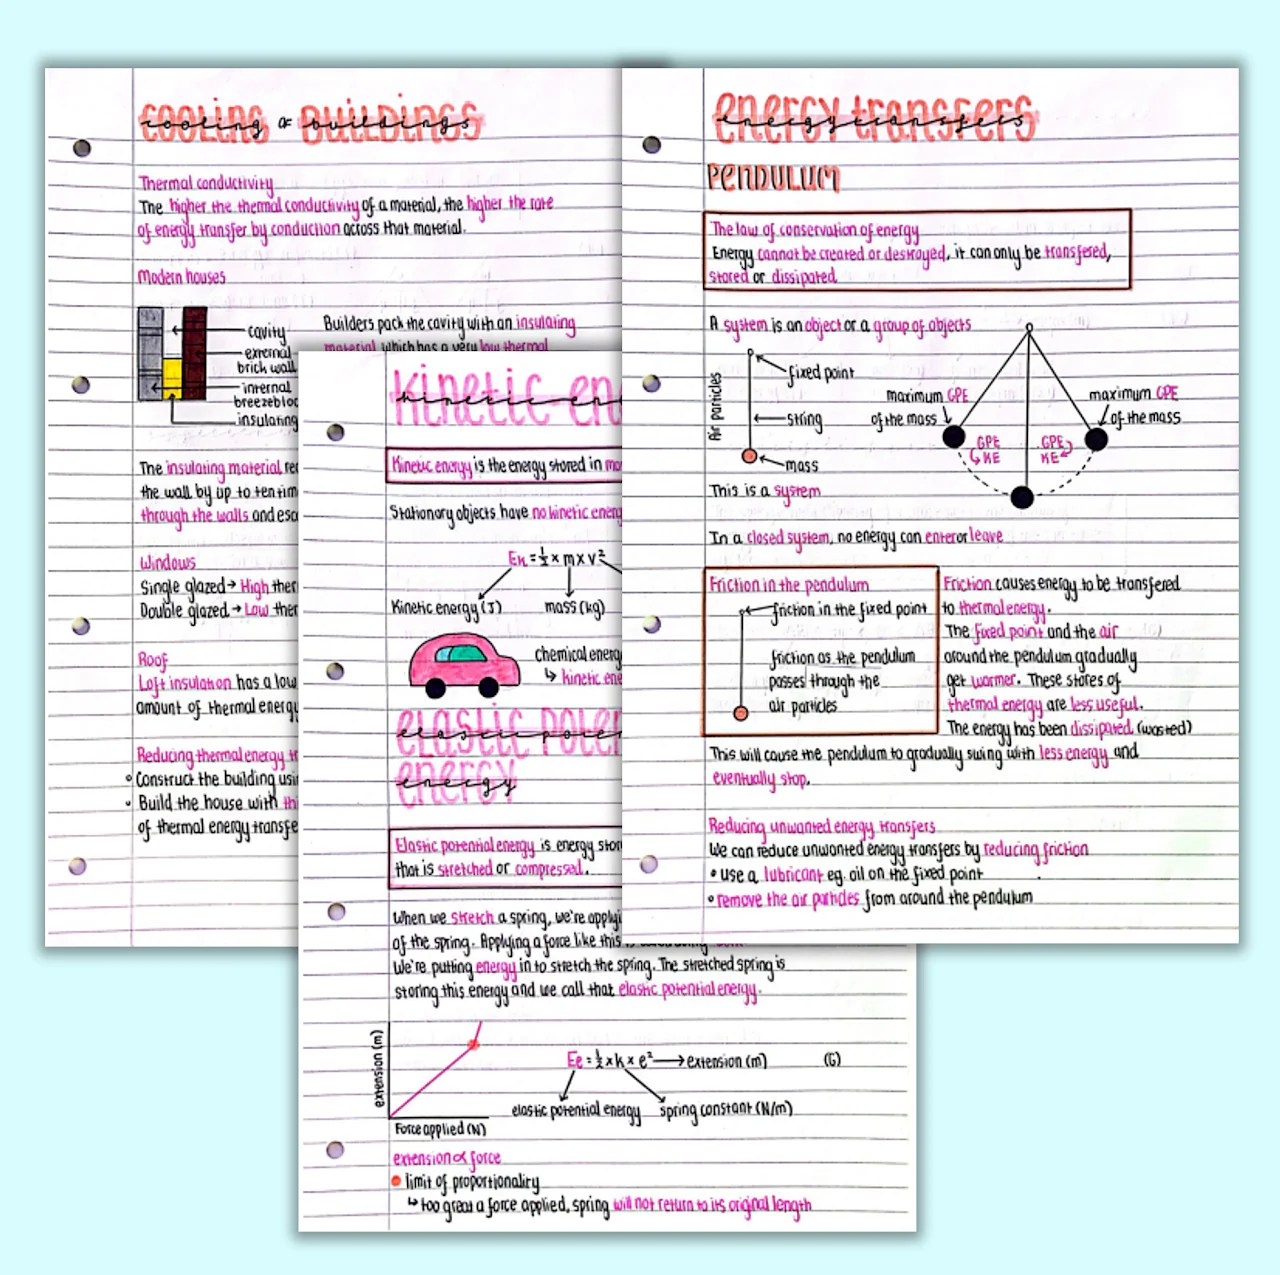 cooling of buildings
Thermal conductivity
The higher the thermal conductivity of a material, the higher the rate
of energy transfer by conduction across that material.
Modern houses
cavity
external
brick wall
internal
breezebloc
insulating
Builders pack the cavity with an insulating
material which has a very low thermal
The insulating material re
the wall by up to ten tim
through the walls and esc
Windows
Single glazed → High ther
Double glazed → Low ther
Roof
Loft insulation has a low
amount of thermal energy
Reducing thermal energy tr
• Construct the building usi
• Build the house with thi
of thermal energy transfe
kinetic en
Kinetic energy is the energy stored in mo
Stationary objects have no kinetic energ
Ek = ½ × m × v²
Kinetic energy (J)
mass (kg)
chemical energ
↳ kinetic ene
elastic poten
energy
Elastic potential energy is energy stor
that is stretched or compressed.
When we stretch a spring, we're applyi
of the spring. Applying a force like this
We're putting energy in to stretch the spring. The stretched spring is
storing this energy and we call that elastic potential energy.
extension (m)
Force applied (N)
Ee = ½ × k × e² → extension (m)
(G)
elastic potential energy
spring constant (N/m)
extension ∝ force
limit of proportionality
↳ too great a force applied, spring will not return to its original length
energy transfers
PENDULUM
The law of conservation of energy
Energy cannot be created or destroyed, it can only be transfered,
stored or dissipated.
A system is an object or a group of objects
Air particles
fixed point
string
mass
This is a system
maximum GPE
of the mass
maximum GPE
of the mass
GPE
KE
GPE
KE
In a closed system, no energy can enter or leave
Friction in the pendulum
friction in the fixed point
friction as the pendulum
passes through the
air particles
Friction causes energy to be transfered
to thermal energy.
The fixed point and the air
around the pendulum gradually
get warmer. These stores of
thermal energy are less useful.
The energy has been dissipated (wasted)
This will cause the pendulum to gradually swing with less energy and
eventually stop.
Reducing unwanted energy transfers
We can reduce unwanted energy transfers by reducing friction
• use a lubricant eg. oil on the fixed point
• remove the air particles from around the pendulum